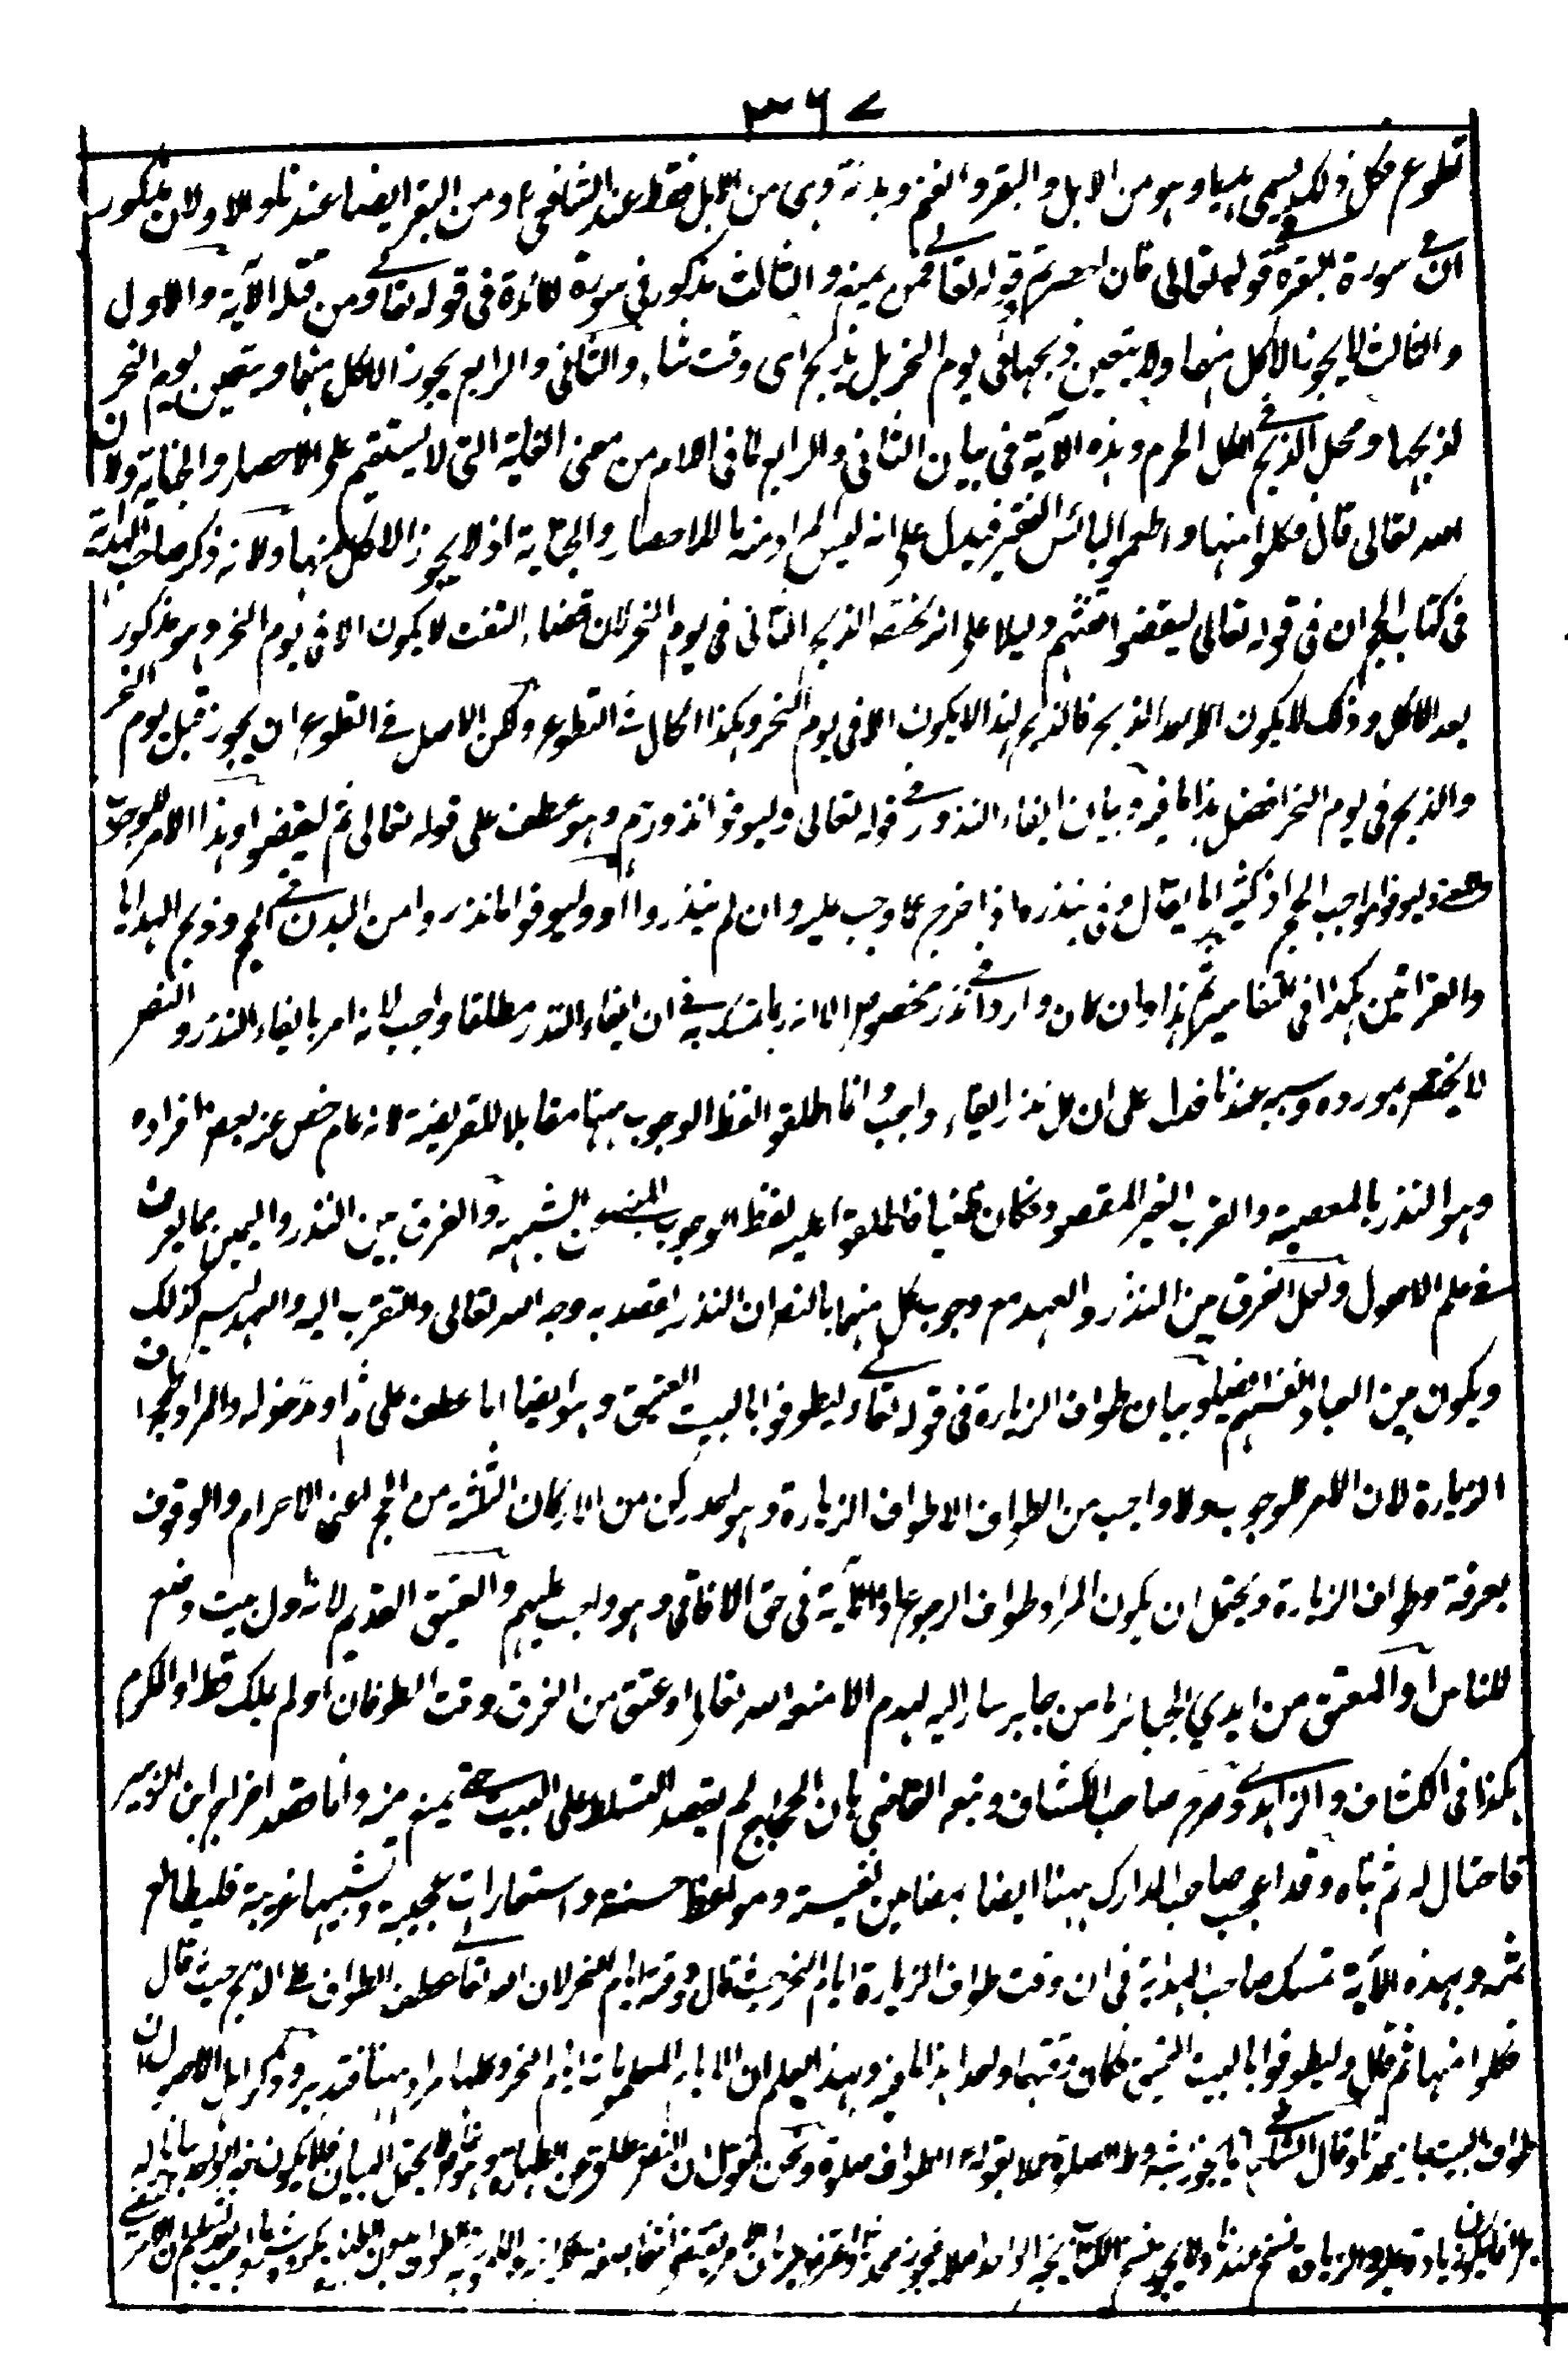 ٣٦٧
تطوع فكل ذلك يسمى هديا وهو من الابل والبقر والغنم وبدنة وهى من الابل فقط عند الشافعى رح ومن البقر ايضا عندنا والاولان مذكور
ان فى سورة البقرة فى قوله تعالى فان احصرتم وقوله تعالى فمن تمتع والثالث مذكور فى سورة المائدة فى قوله تعالى ومن قتله الآية والاول
والثالث لا يجوز الاكل منهما ولا يتعين ذبحهما فى يوم النحر بل يذبح اى وقت شاء والثانى والرابع يجوز الاكل منهما ويتعين يوم النحر
لذبحهما ومحل الذبح فى الكل الحرم وهذه الآية فى بيان الثانى والرابع لما فى اللام من معنى الغاية التى لا يستقيم على الاحصار والجناية ولان
الله تعالى قال فكلوا منها واطعموا البائس الفقير فيدل على انه ليس المراد منه الاحصار والجناية اذ لا يجوز الاكل منها ولانه ذكر صاحب الهداية
فى كتاب الحج ان فى قوله تعالى ليقضوا تفثهم دليلا على انه يختص الذبح الثانى فى يوم النحر لان قضاء التفث لا يكون الا فى يوم النحر وهو مذكور
بعد الاكل وذلك لا يكون الا بعد الذبح فالذبح لهذا لا يكون الا فى يوم النحر وهكذا الحال فى التطوع ولكن الاصل فى التطوع ان يجوز قبل يوم النحر
والذبح فى يوم النحر افضل هذا ما فيه وبيان ايفاء النذور فى قوله تعالى وليوفوا نذورهم وهو عطف على قوله تعالى ثم ليقضوا وهذا الامر للوجوب
وليوفوا مواجب الحج اذ كثيرا ما يقال وفى بنذره اذا خرج عما وجب عليه وان لم ينذروا او وليوفوا ما نذروا من البدن فى الحج وذبح الهدايا
والقرابين هكذا فى التفاسير ثم هذا وان كان واردا فى نذر مخصوص الا انه ربما يتمسك به فى ان ايفاء النذر مطلقا واجب لانه امر بايفاء النذر والنص
لا يختص بمورده وسببه عندنا فدل على ان كل نذر ايفاءه واجب وانما اطلق لفظ الوجوب ههنا مقابلا للفريضة لانه عام خص عنه بعض افراده
وهو النذر بالمعصية والقرب الغير المقصود فكان ظنيا فاطلقوا عليه لفظ الوجوب الشبهة والفرق بين النذر واليمين مما يعرف
فى علم الاصول ولعل الفرق بين النذر والعهد مع وجوب كل منهما بالنص ان النذر يقصد به وجه الله تعالى والتقرب اليه والعهد ليس كذلك
ويكون بين العباد انفسهم ايضا وبيان طواف الزيارة فى قوله تعالى وليطوفوا بالبيت العتيق وهو ايضا اما عطف على ثم او مدخوله والمراد طواف
الزيارة لان الامر للوجوب ولا واجب من الطواف الا طواف الزيارة وهو احد ركن من الاركان الثلثة من الحج اعنى الاحرام والوقوف
بعرفة وطواف الزيارة ويحتمل ان يكون المراد طواف الرجوع والآية فى حق الآفاقى وهو واجب عليهم والعتيق القديم لانه اول بيت وضع
للناس او المعتق من ايدي الجبابرة من جابر سار اليه ليهدم الا منعه الله تعالى او عتق من الغرق وقت الطوفان او لم يملك قط او الكرم
هكذا فى الكشاف والزاهدى وصرح صاحب الكشاف وتبعه القاضى بان الحجاج لم يقصد التسلط على البيت حتى يمنع منه وانما قصد اخراج ابن الزبير
فاحتال له ثم بناه وقد اعجب صاحب المدارك ههنا ايضا بمضامين نفيسة ومواعظ حسنة واستعارات عجيبة وتشبيهات غريبة فليطالع
ثمه وبهذه الآية تمسك صاحب الهداية فى ان وقت طواف الزيارة ايام النحر حيث قال ووقته ايام النحر لان الله تعالى عطف الطواف على الذبح حيث قال
فكلوا منها ثم قال وليطوفوا بالبيت العتيق فكان وقتهما واحدا هذا ما فيه وبهذا يعلم ان الايام المعلومات ايام النحر وكلها مراد ههنا فتدبر وذكر اهل الاصول ان
طواف البيت جائز عندنا وقال الشافعى لا يجوز بشروط الصلوة عملا بقوله ع الطواف صلوة ونحن نقول ان النص مطلق عن الطهارة لا يحتمل البيان فلا يكون خبر الواحد بيانا له